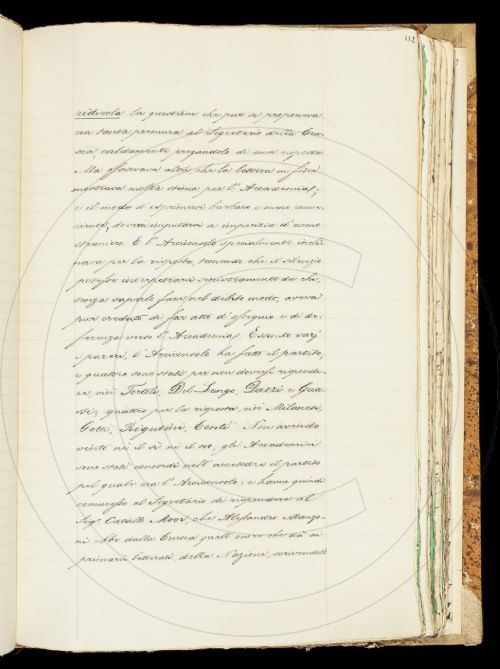 412
ridicola la questione che pur si proponeva
con tanta premura al Segretario della Cru-
sca, caldamente pregandolo di una risposta.
Ma osservava altresì che la lettera in fine
mostrava molta stima per l'Accademia;
e il modo d'esprimersi barbaro e meno conve-
niente, doversi imputare a imperizia d'uomo
straniero. E l'Arciconsolo specialmente incli-
nava per la risposta, temendo che il silenzio
potesse interpretarsi sinistramente da chi,
senza saperlo fare nel debito modo, aveva
pur creduto di far atto d'ossequio e di de-
ferenza verso l'Accademia. Essendo varj
i pareri, l'Arciconsolo ha fatto il partito,
e quattro sono stati per non doversi risponde-
re, cioè Tortoli, Del-Lungo, Dazzi e Gua-
sti; quattro per la risposta, cioè Milanesi,
Gotti, Rigutini, Conti. Non avendo
vinto nè il sì nè il no, gli Accademici
sono stati concordi nell'accettare il partito
pel quale era l'Arciconsolo; e hanno quindi
commesso al Segretario di rispondere al
Sigr. Catullo Moor, che Alessandro Manzo-
ni ebbe dalla Crusca quell'onore che dà ai
primarii letterati della Nazione, scrivendolo